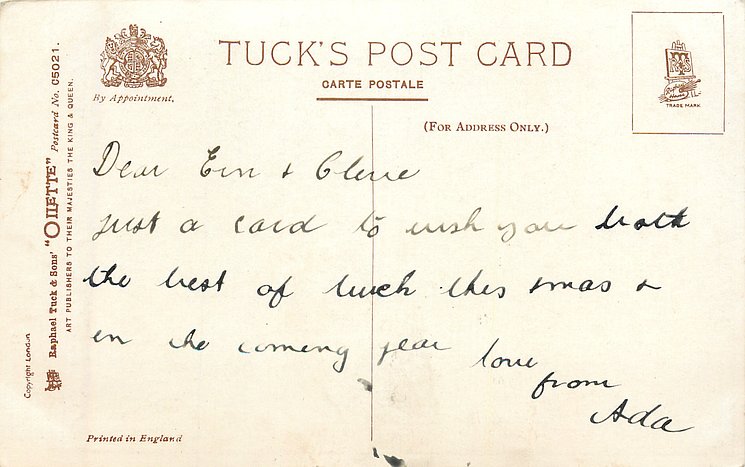 TUCK'S POST CARD
CARTE POSTALE
(FOR ADDRESS ONLY.)
By Appointment.
TRADE MARK.
Raphael Tuck & Sons' "OILETTE" Postcard No. C5021.
ART PUBLISHERS TO THEIR MAJESTIES THE KING & QUEEN.
Copyright London
Dear & 
just a card to wish you both
the best of luck this xmas &
in the coming year
love
from
Ada
Printed in England